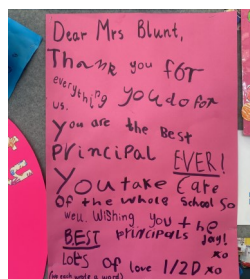 Dear Mrs Blunt,
Thank you for
everything you do for
us.
You are the Best
principal EVER!
You take care
of the whole school so
well. Wishing you the
BEST principals day!
xo
Lots of love 1/2D xo
(we each wrote a word)